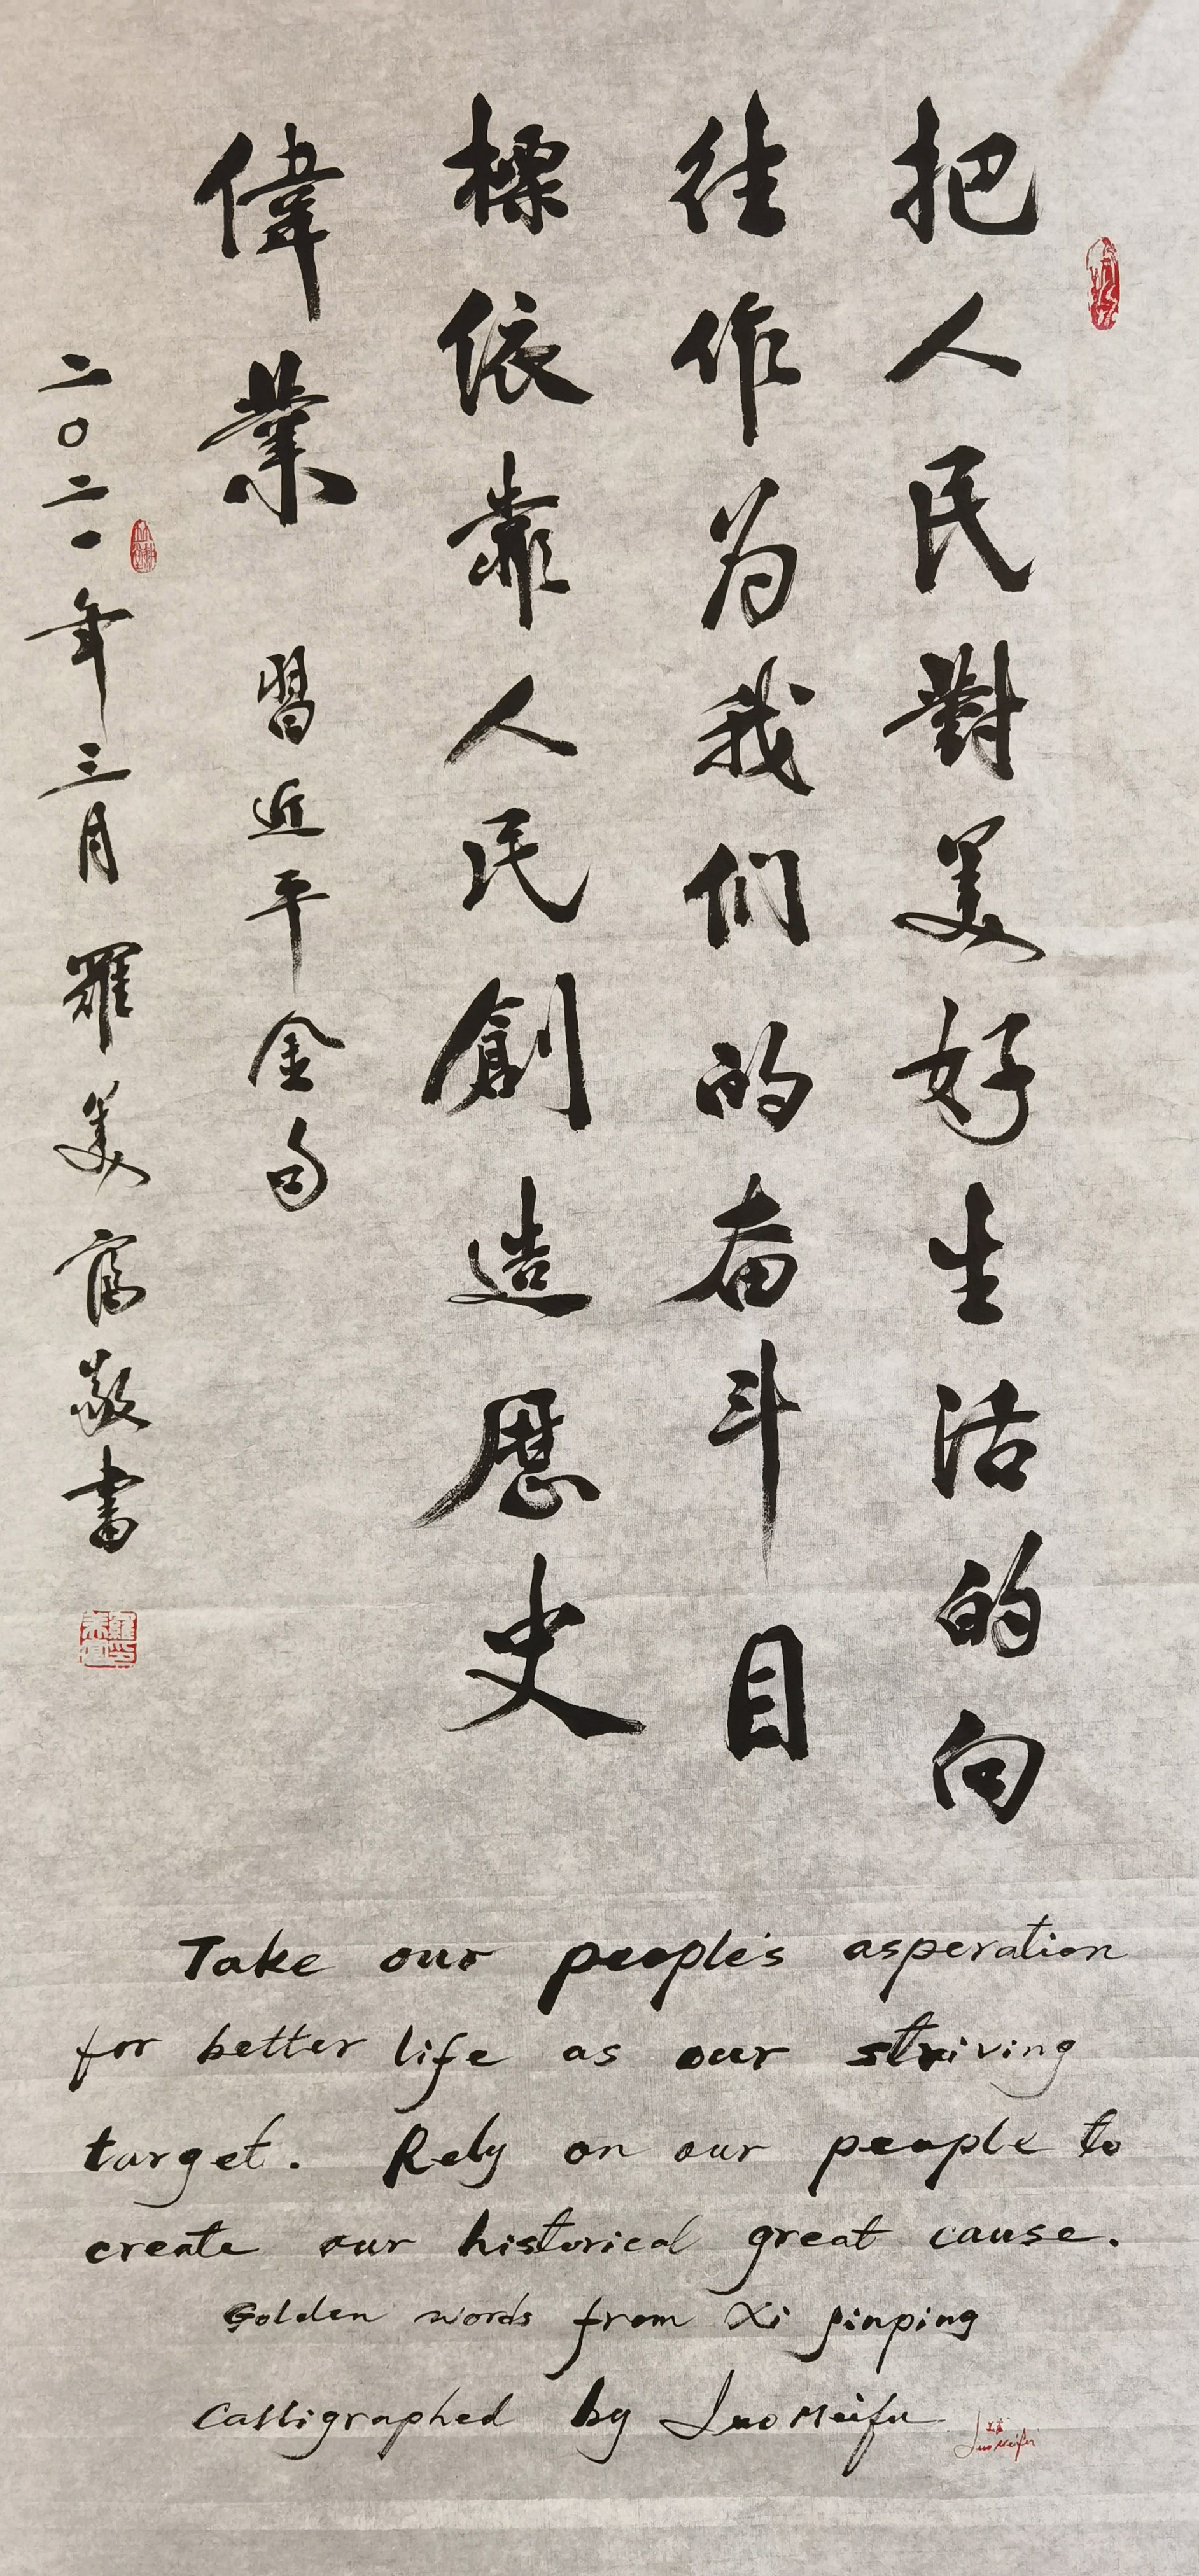 把人民對美好生活的向
往作为我们的奋斗目
標依靠人民創造歷史
偉業 習近平金句
二〇二一年三月 羅美富敬書
Take our people's asperation
for better life as our striving
target. Rely on our people to
create our historical great cause.
Golden words from Xi Jinping
Calligraphed by Luo Meifu
Luo Meifu